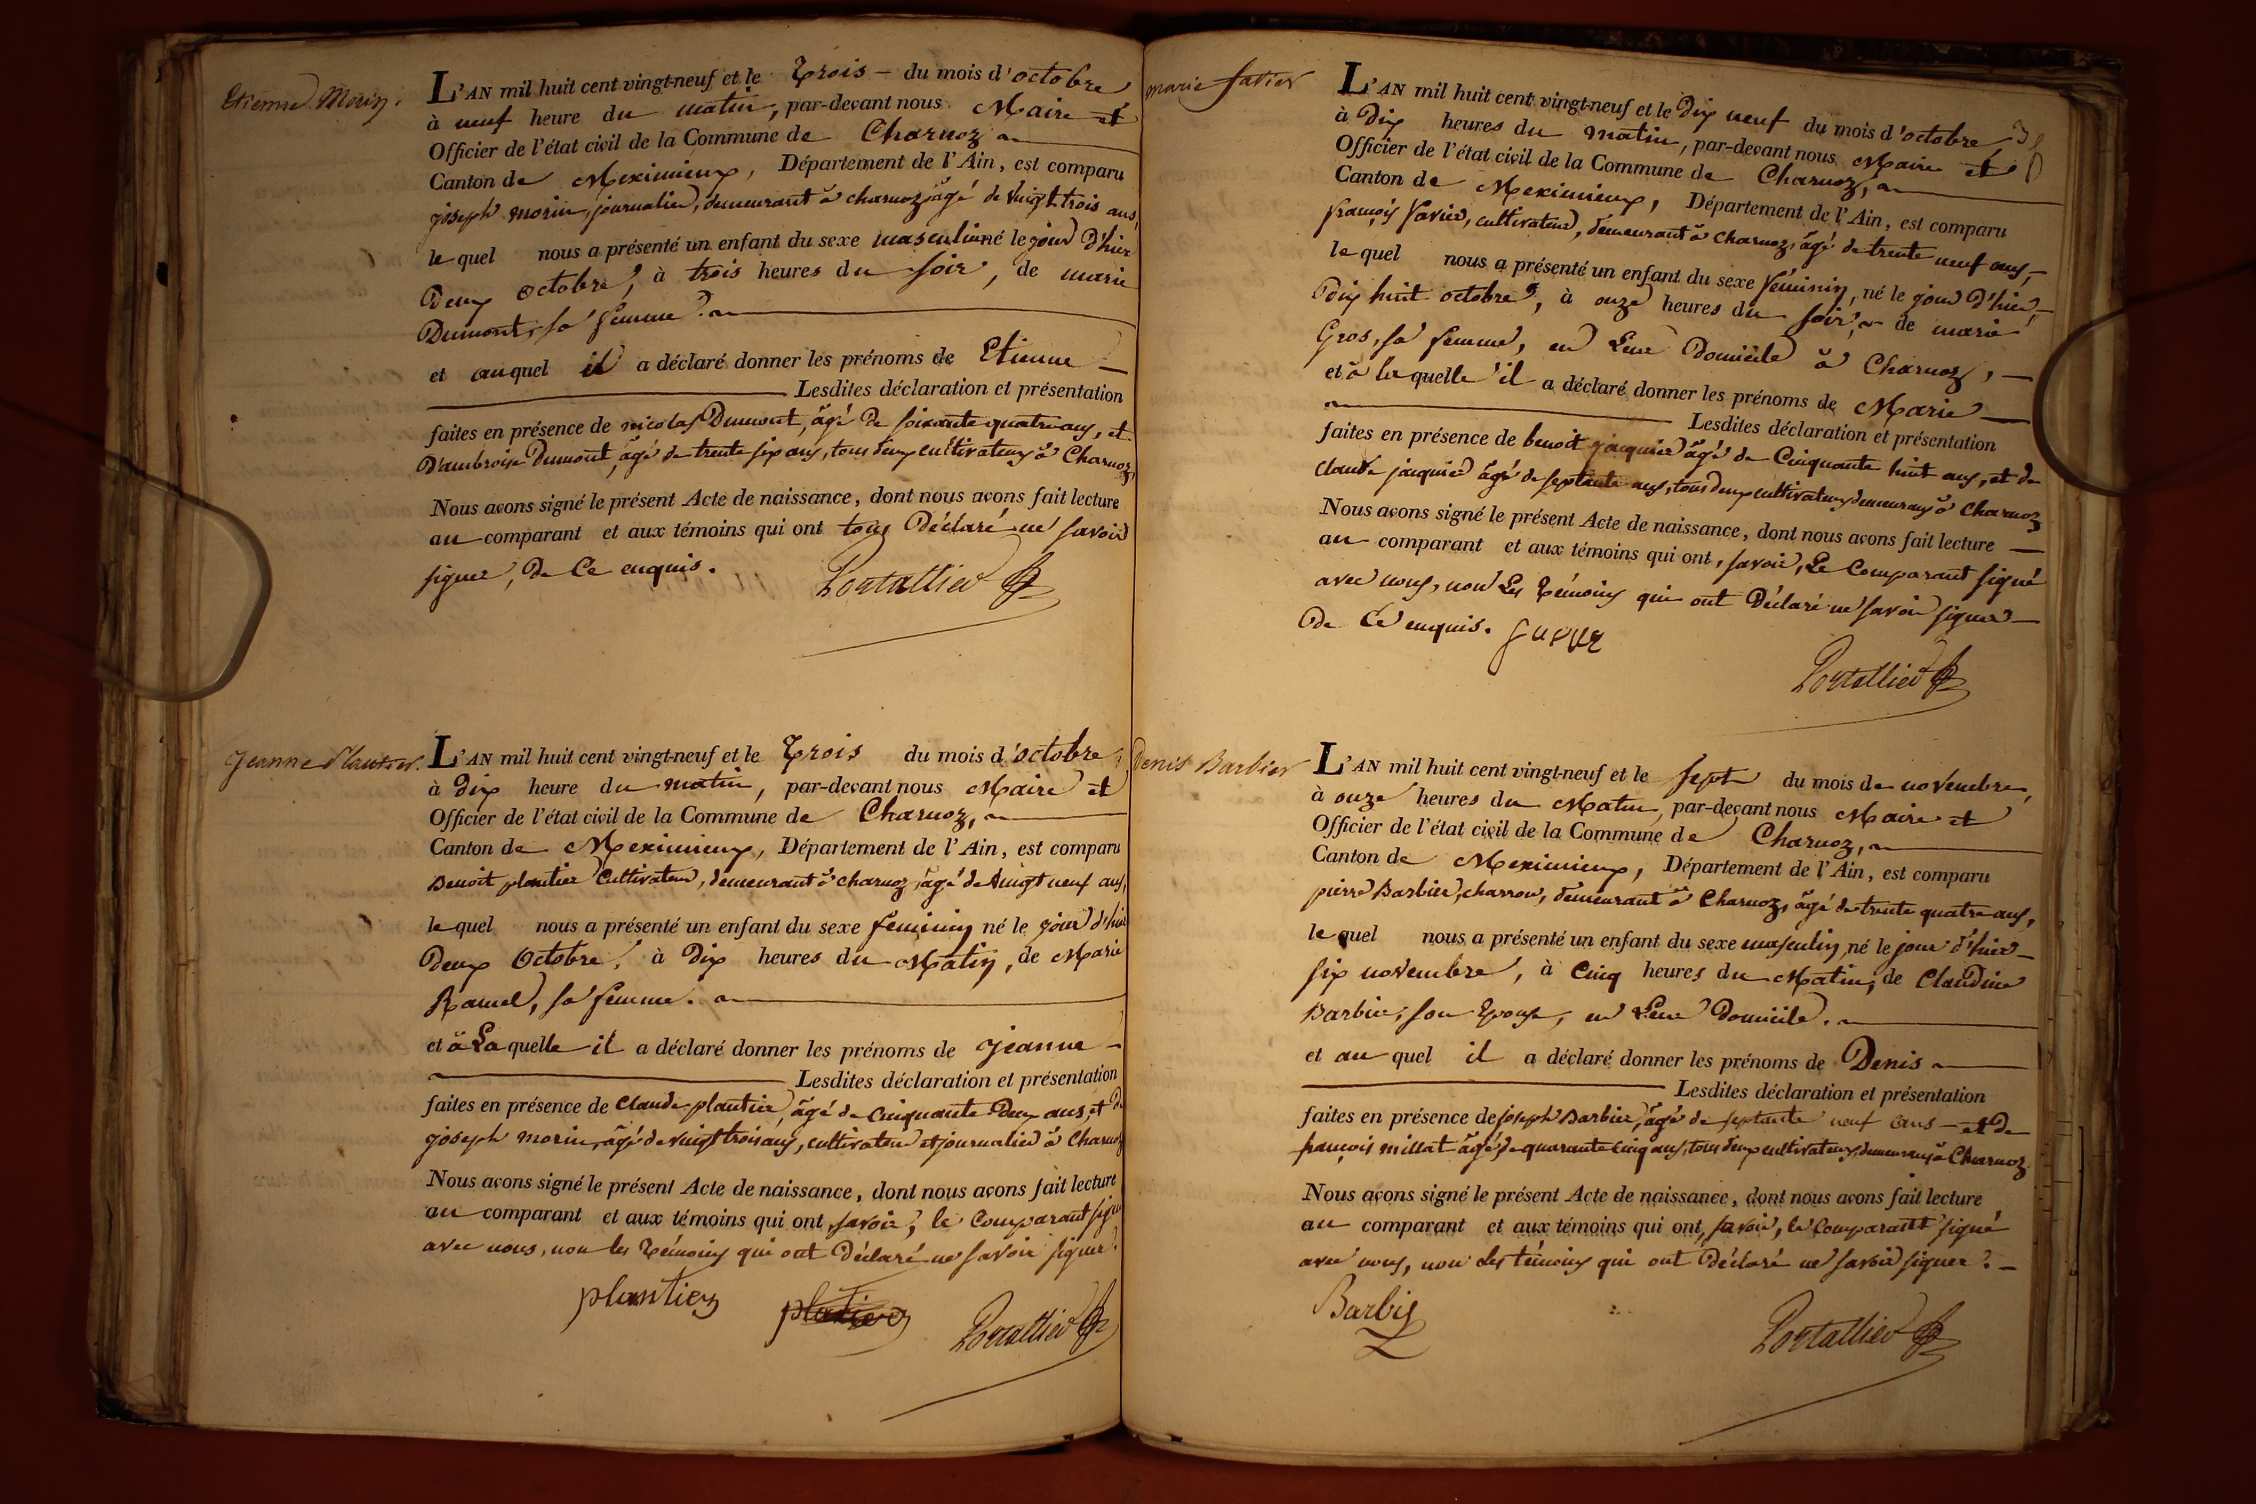 Etienne Morin.
L'AN mil huit cent vingt-neuf et le Trois – du mois d'octobre
à neuf heure du matin, par-devant nous Maire et
Officier de l'état civil de la Commune de Charnoz
Canton de Meximieux, Département de l'Ain, est comparu
joseph morin, journalier, demeurant à charnoz, âgé de vingt trois ans,
le quel nous a présenté un enfant du sexe masculin né le jour d'hier
Deux octobre, à trois heures du soir, de marie
Dumont, sa femme.
et au quel il a déclaré donner les prénoms de Etienne –
Lesdites déclaration et présentation
faites en présence de nicolas Dumont, âgé de soixante quatre ans, et
D'ambroise Dumont, âgé de trente six ans, tous deux cultivateurs à Charnoz,
Nous avons signé le présent Acte de naissance, dont nous avons fait lecture
au comparant et aux témoins qui ont tous Déclaré ne savoir
signer, De Ce enquis.
Portallier
Jeanne Plantier.
L'AN mil huit cent vingt-neuf et le Trois du mois d'octobre
à dix heure du matin, par-devant nous Maire et
Officier de l'état civil de la Commune de Charnoz,
Canton de Meximieux, Département de l'Ain, est comparu
Benoit plantier Cultivateur, demeurant à charnoz, âgé de vingt neuf ans,
le quel nous a présenté un enfant du sexe feminin né le jour d'hier
Deux Octobre, à Dix heures du Matin, de Marie
Ramel, sa femme.
et à La quelle il a déclaré donner les prénoms de jeanne –
Lesdites déclaration et présentation
faites en présence de Claude plantier, âgé de Cinquante Deux ans, et de
joseph morin, âgé de vingt trois ans, cultivateur et journalier à Charnoz
Nous avons signé le présent Acte de naissance, dont nous avons fait lecture
au comparant et aux témoins qui ont, savoir, le Comparant signé
avec nous, non les témoins qui ont Déclaré ne savoir signer.
plantier
Portallier
marie favier
L'AN mil huit cent vingt-neuf et le Dix neuf du mois d'octobre,
à Dix heures du matin, par-devant nous Maire et
Officier de l'état civil de la Commune de Charnoz,
Canton de Meximieux, Département de l'Ain, est comparu
françois favier, cultivateur, demeurant à Charnoz, âgé de trente neuf ans, –
le quel nous a présenté un enfant du sexe féminin, né le jour d'hier, –
Dix huit octobre, à onze heures du soir, de marie
Gros, sa femme, en Leur Domicile à Charnoz, –
et à la quelle il a déclaré donner les prénoms de Marie
Lesdites déclaration et présentation
faites en présence de benoit jacquier âgé de Cinquante huit ans, et de
claude jacquier âgé de septante ans, tous deux cultivateurs demeurans à Charnoz
Nous avons signé le présent Acte de naissance, dont nous avons fait lecture –
au comparant et aux témoins qui ont, savoir, Le Comparant signé
avec nous, non Les Témoins qui ont Déclaré ne savoir signer –
De Ce enquis.
Portallier
Denis Barbier
L'AN mil huit cent vingt-neuf et le sept du mois de novembre,
à onze heures du Matin, par-devant nous Maire et
Officier de l'état civil de la Commune de Charnoz,
Canton de Meximieux, Département de l'Ain, est comparu
pierre Barbier, charron, demeurant à Charnoz, âgé de trente quatre ans,
le quel nous a présenté un enfant du sexe masculin, né le jour d'hier –
six novembre, à Cinq heures du Matin, de Claudine
Barbier, son Epouse, en Leur Domicile.
et au quel il a déclaré donner les prénoms de Denis
Lesdites déclaration et présentation
faites en présence de joseph Barbier, âgé de septante neuf ans – et de
françois millat âgé de quarante cinq ans, tous deux cultivateurs, demeurans à Charnoz
Nous avons signé le présent Acte de naissance, dont nous avons fait lecture
au comparant et aux témoins qui ont, savoir, le Comparant signé
avec nous, non les témoins qui ont Déclaré ne savoir signer. –
Barbier
Portallier